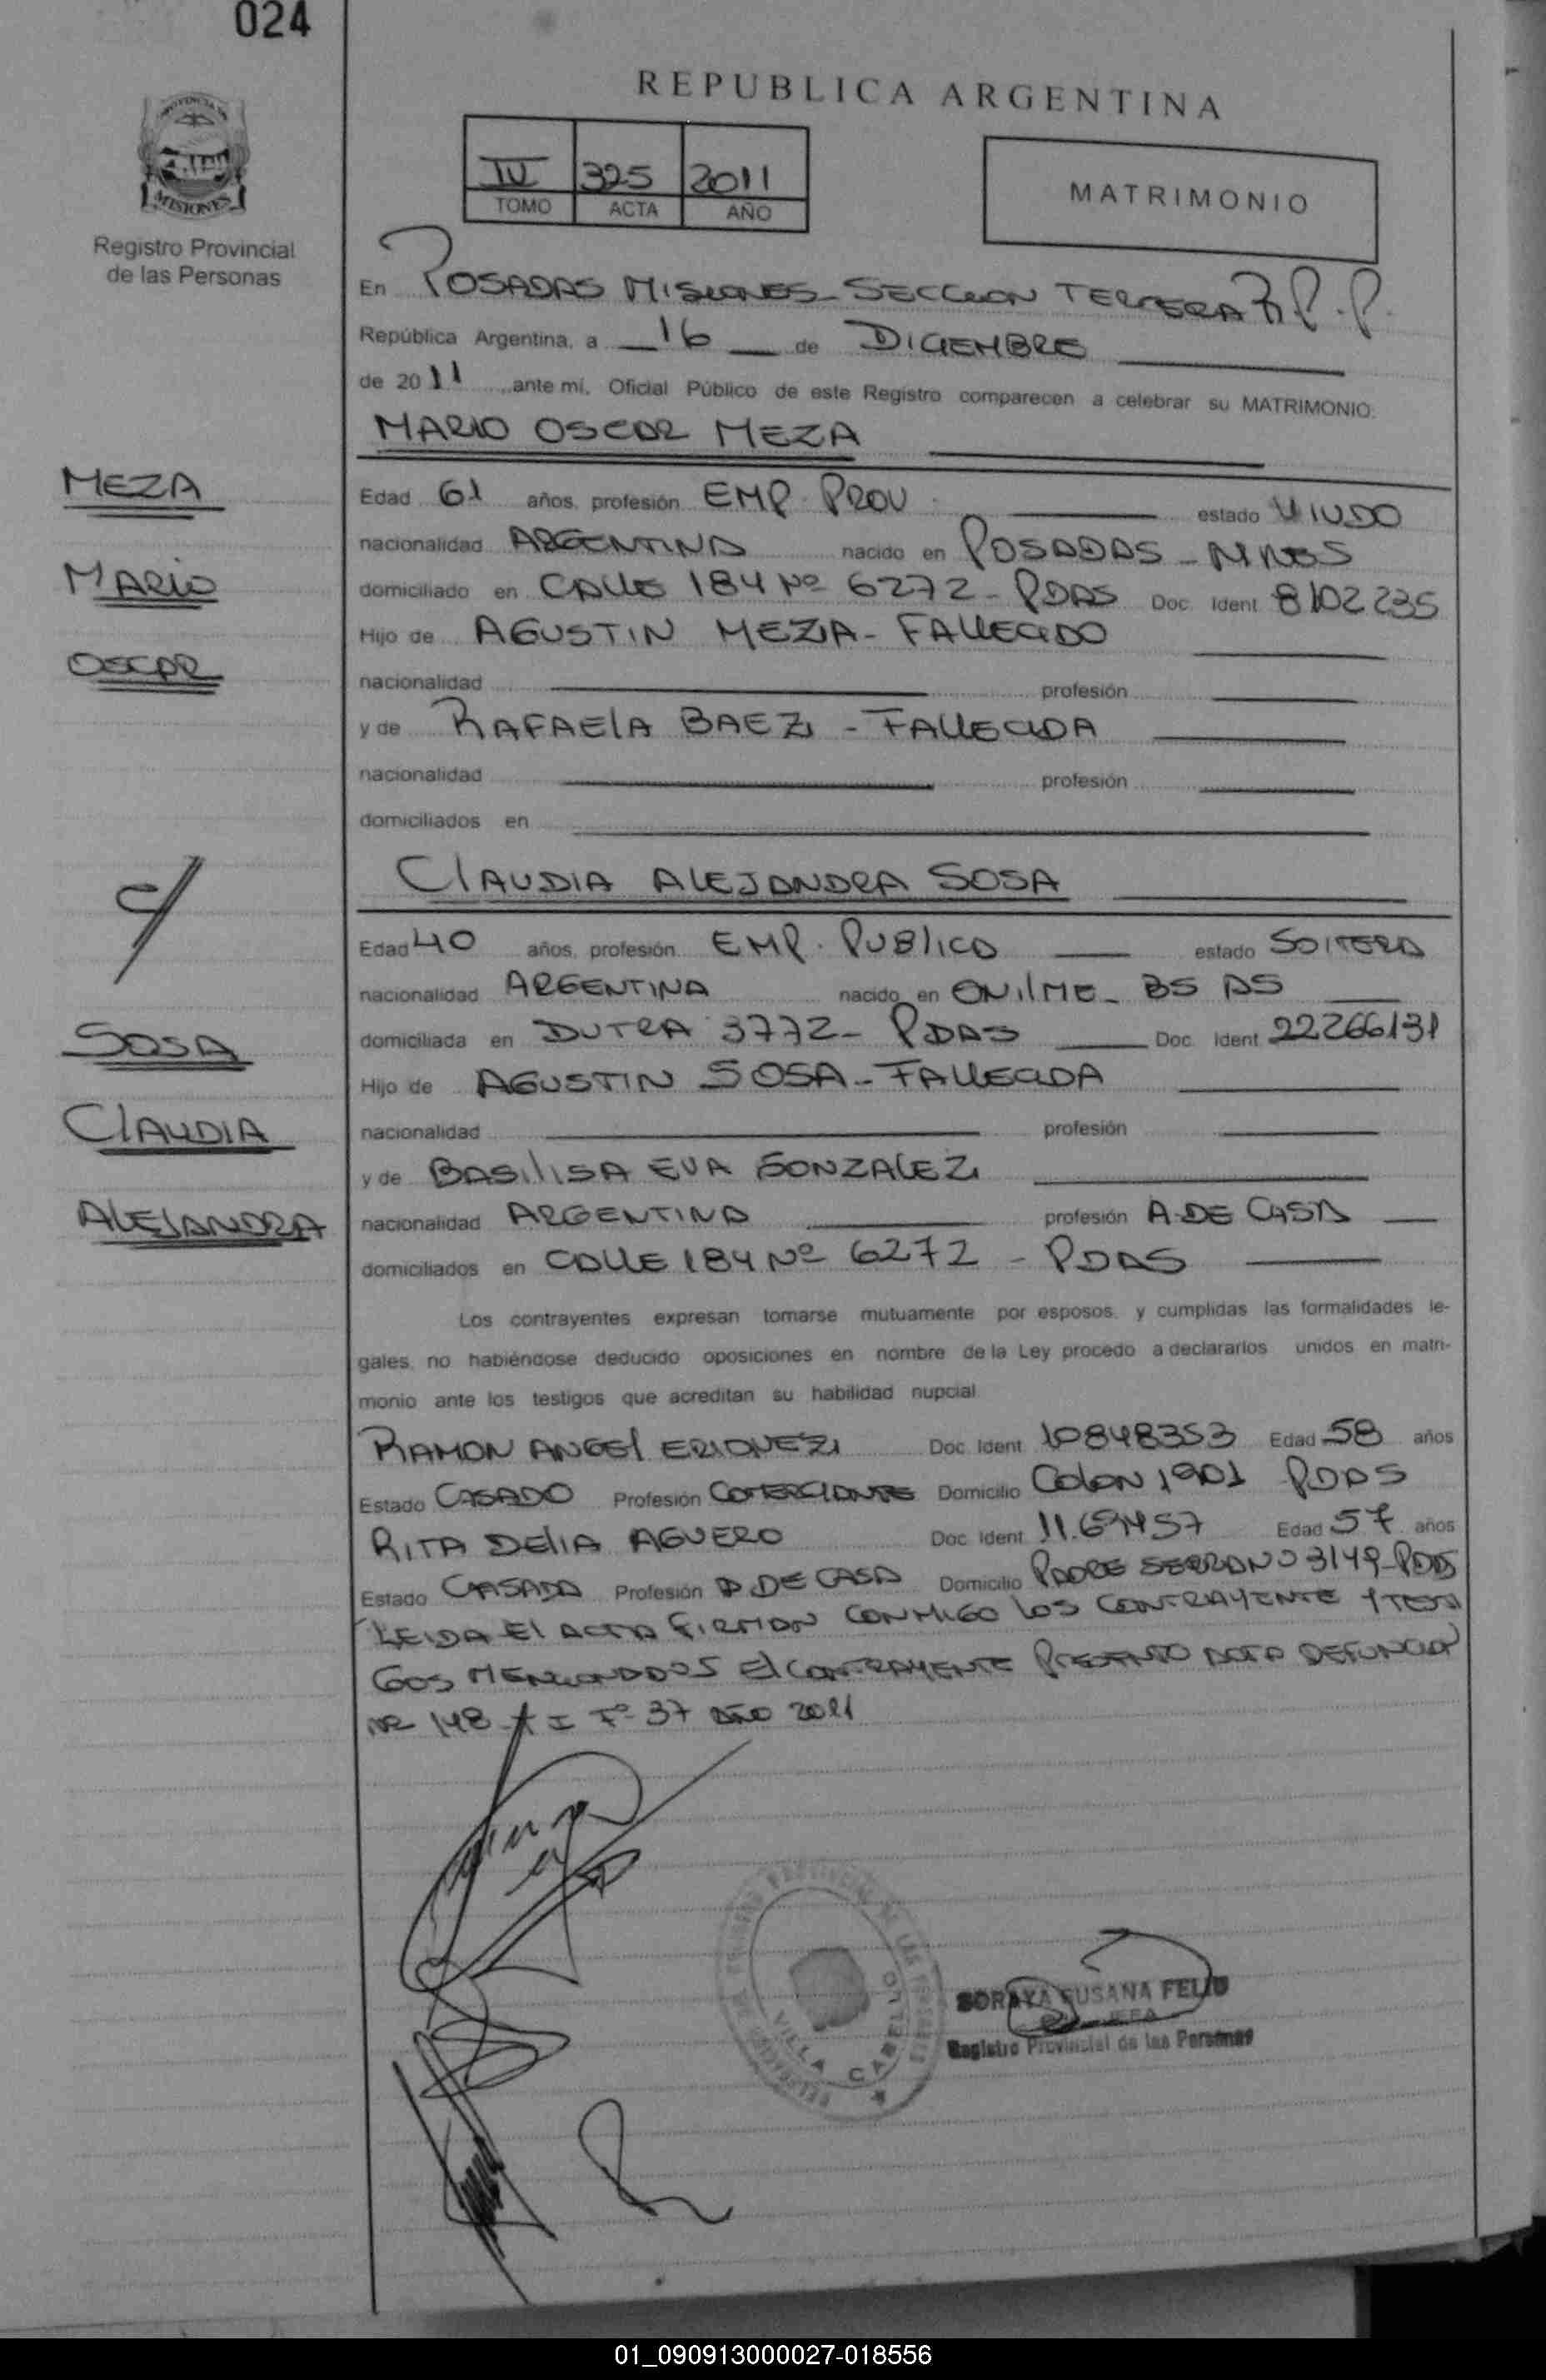 024
REPUBLICA ARGENTINA
PROVINCIA DE
MISIONES
Registro Provincial
de las Personas
IV 325 2011
TOMO ACTA AÑO
MATRIMONIO
En POSADAS MISIONES - SECCION TERCERA R.P.P.
República Argentina, a 16 de DICIEMBRE
de 2011 ante mí, Oficial Público de este Registro comparecen a celebrar su MATRIMONIO:
MARIO OSCAR MEZA
MEZA
MARIO
OSCAR
Edad 61 años, profesión EMP. PROV. estado VIUDO
nacionalidad ARGENTINA nacido en POSADAS - MNES
domiciliado en CALLE 184 Nº 6272 - PDAS Doc. Ident. 8102235
Hijo de AGUSTIN MEZA - FALLECIDO
nacionalidad profesión
y de RAFAELA BAEZ - FALLECIDA
nacionalidad profesión
domiciliados en
CLAUDIA ALEJANDRA SOSA
c/
SOSA
CLAUDIA
ALEJANDRA
Edad 40 años, profesión EMP. PUBLICA estado SOLTERA
nacionalidad ARGENTINA nacido en BS AS
domiciliada en DUTRA 3772 - PDAS Doc. Ident. 22266131
Hijo de AGUSTIN SOSA - FALLECIDA
nacionalidad profesión
y de BASILISA EVA GONZALEZ
nacionalidad ARGENTINA profesión A. DE CASA
domiciliados en CALLE 184 Nº 6272 - PDAS
Los contrayentes expresan tomarse mutuamente por esposos, y cumplidas las formalidades le-
gales, no habiéndose deducido oposiciones en nombre de la Ley procedo a declararlos unidos en matri-
monio ante los testigos que acreditan su habilidad nupcial
RAMON ANGEL Doc. Ident. 10848353 Edad 58 años
Estado CASADO Profesión COMERCIANTE Domicilio COLON 1901 PDAS
RITA DELIA AGUERO Doc. Ident. Edad 57 años
Estado CASADA Profesión A DE CASA Domicilio PADRE SERRANO 3149 - PDAS
LEIDA El ACTA FIRMAN CONMIGO LOS CONTRAYENTE Y TESTI
GOS MENCIONADOS El CONTRAYENTE PRESENTO ACTA DEFUNCION
NR 148 T I Fº 37 AÑO 2011
VILLA CABELLO
SORAYA SUSANA FELIU
JEFA
Registro Provincial de las Personas
01_090913000027-018556